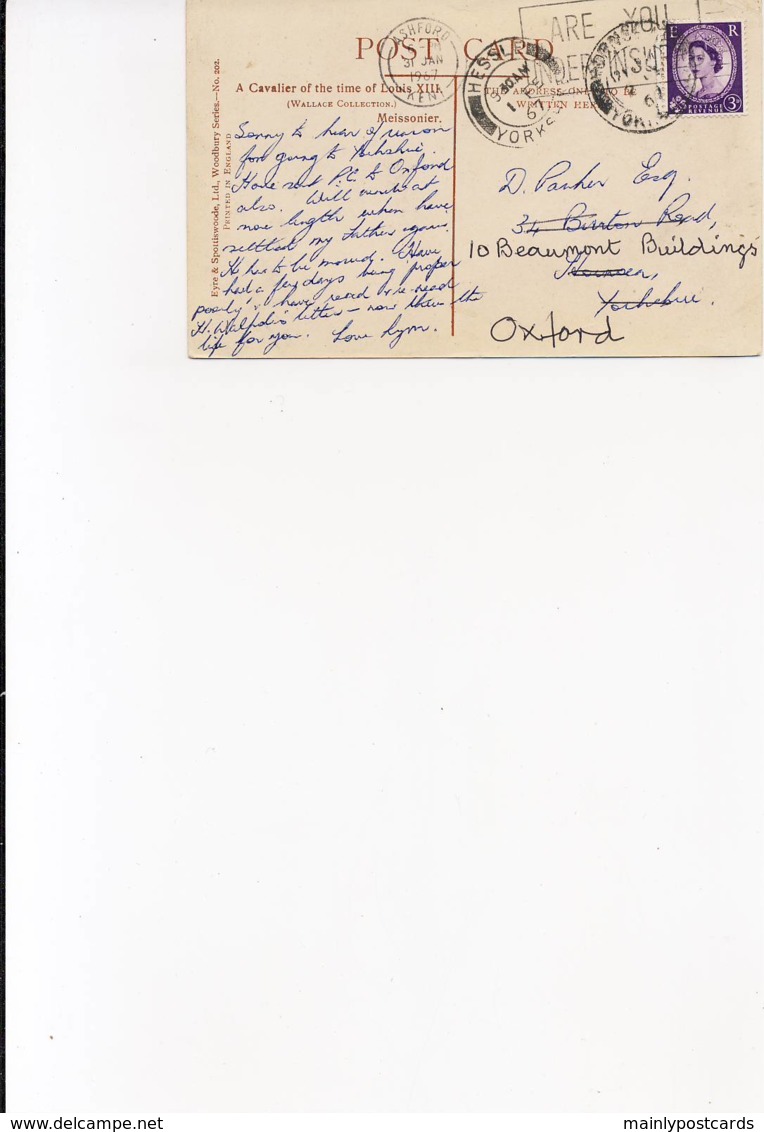 POST CARD
ARE YOU
UNDERINSURED
ASHFORD
31 JAN
1967
KENT
HESSLE
9.30AM
1 FE
67
YORKS
HORNSEA
67
YORKS
E R
POSTAGE
REVENUE
3D
A Cavalier of the time of Louis XIII.
(WALLACE COLLECTION.)
Meissonier.
THE ADDRESS ONLY TO BE
WRITTEN HERE
Eyre & Spottiswoode, Ltd., Woodbury Series.—No. 202.
PRINTED IN ENGLAND
Sorry to hear of reason
for going to Yorkshire.
Have sent P.C. to Oxford
also. Will write at
more length when have
settled my Father again.
He has to be moved. Have
had a few days being proper
poorly & have read & re-read
H. Walpole's letters – now there the
life for you. Love Lym.
D. Parker Esq.
34 Burton Road,
10 Beaumont Buildings
Hornsea,
Yorkshire.
Oxford
mainlypostcards